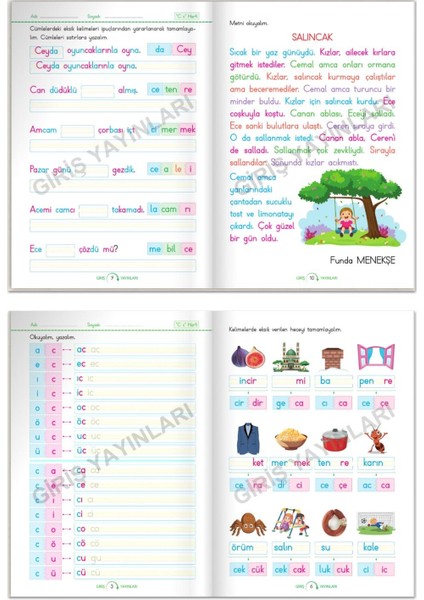 Adı: Soyadı: "C c" Harfi
Cümlelerdeki eksik kelimeleri ipuçlarından yararlanarak tamamlaya-
lım. Cümleleri satırlara yazalım.
Ceyda oyuncaklarınla oyna. da Cey
Ceyda oyuncaklarınla oyna.
Can düdüklü almış. ce ten re
Amcam çorbası içti. ci mer mek
Pazar günü gezdik. ce a le i
Acemi camcı takamadı. la cam rı
Ece çözdü mü? me bil ce
GİRİŞ 7 YAYINLARI
Metni okuyalım.
SALINCAK
Sıcak bir yaz günüydü. Kızlar, ailecek kırlara
gitmek istediler. Cemal amca onları ormana
götürdü. Kızlar, salıncak kurmaya çalıştılar
ama beceremediler. Cemal amca turuncu bir
minder buldu. Kızlar için salıncak kurdu. Ece
coşkuyla koştu. Canan ablası, Ece'yi salladı.
Ece sanki bulutlara ulaştı. Ceren sıraya girdi.
O da sallanmak istedi. Canan abla, Ceren'i
de salladı. Sallanmak çok zevkliydi. Sırayla
sallandılar. Sonunda kızlar acıkmıştı.
Cemal amca
yanlarındaki
çantadan sucuklu
tost ve limonatayı
çıkardı. Çok güzel
bir gün oldu.
Funda MENEKŞE
GİRİŞ 10 YAYINLARI
GİRİŞ YAYINLARI
GİRİŞ YAYINLARI
Adı: Soyadı: "C c" Harfi
Okuyalım, yazalım.
a c ac ac
e c ec ec
ı c ıc ıc
i c ic ic
o c oc oc
ö c öc öc
u c uc uc
ü c üc üc
c a ca ca
c e ce ce
c ı cı cı
c i ci ci
c o co co
c ö cö cö
c u cu cu
c ü cü cü
GİRİŞ 3 YAYINLARI
Kelimelerde eksik verilen heceyi tamamlayalım.
incir mi ba pen re
cir dir ge ca cı ca ce çe
ket mer mek ten re karın
ce ra di ci ce çe ac ca
örüm salın su kale
cek cük cek cak luk cuk ci cı
GİRİŞ 6 YAYINLARI
GİRİŞ YAYINLARI
GİRİŞ YAYINLARI